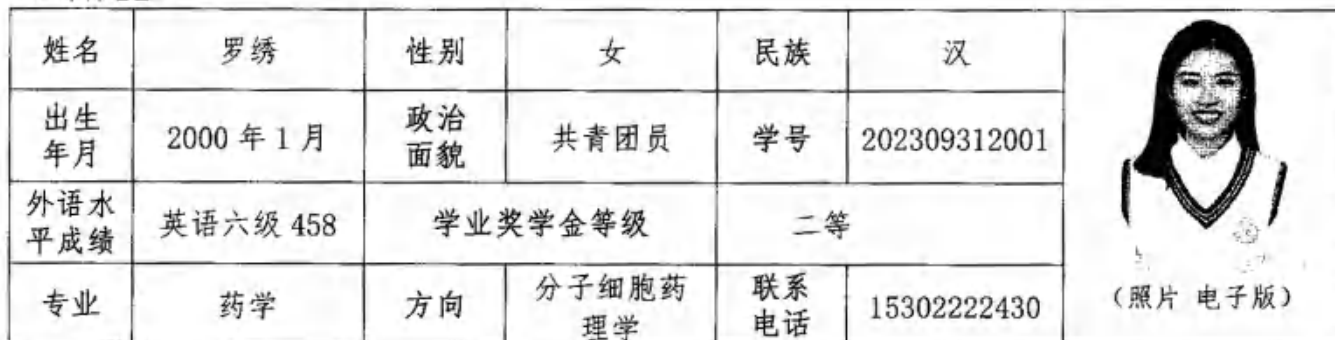 姓名 罗绣 性别 女 民族 汉
出生年月 2000年1月 政治面貌 共青团员 学号 202309312001
外语水平成绩 英语六级 458 学业奖学金等级 二等
专业 药学 方向 分子细胞药理学 联系电话 15302222430
(照片 电子版)